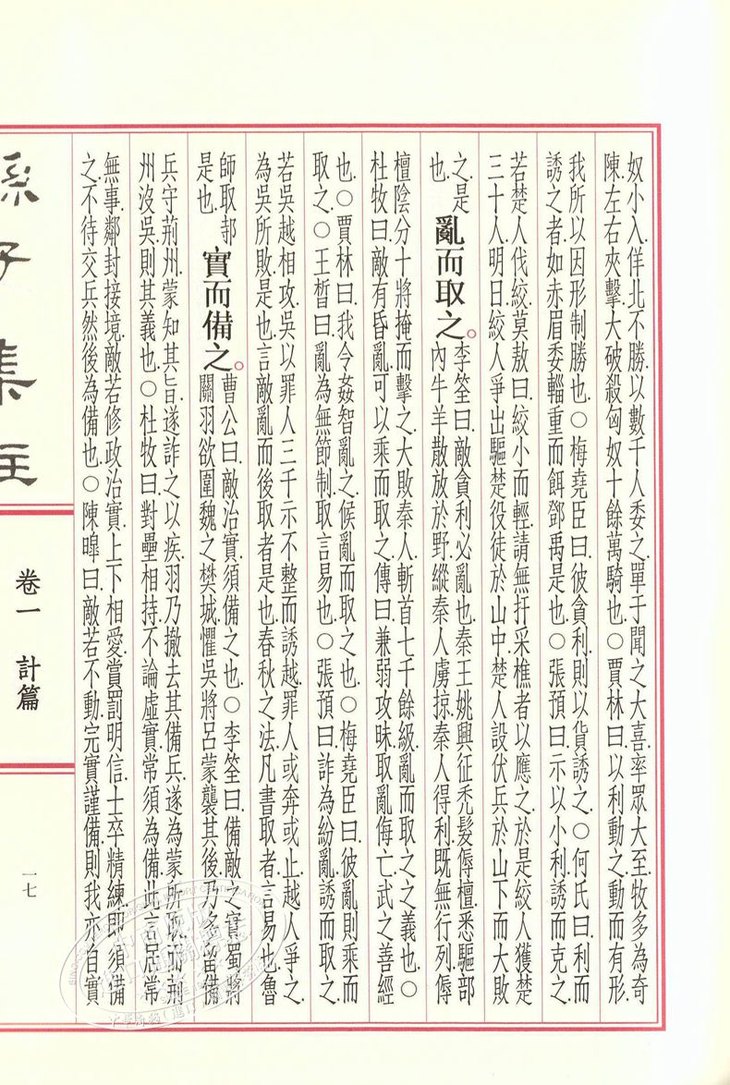 奴小入佯北不勝以數千人委之單于聞之大喜率眾大至牧多為奇
陳左右夾擊大破殺匈奴十餘萬騎也○賈林曰以利動之動而有形
我所以因形制勝也○梅堯臣曰彼貪利則以貨誘之○何氏曰利而
誘之者如赤眉委輜重而餌鄧禹是也○張預曰示以小利誘而克之
若楚人伐絞莫敖曰絞小而輕請無扞采樵者以應之於是絞人獲楚
三十人明日絞人爭出驅楚役徒於山中楚人設伏兵於山下而大敗
之是
也
亂而取之。
李筌曰敵貪利必亂也秦王姚興征禿髮傉檀悉驅部
內牛羊散放於野縱秦人虜掠秦人得利既無行列傉
檀陰分十將掩而擊之大敗秦人斬首七千餘級亂而取之之義也○
杜牧曰敵有昏亂可以乘而取之傳曰兼弱攻昧取亂侮亡武之善經
也○賈林曰我令姦智亂之候亂而取之也○梅堯臣曰彼亂則乘而
取之○王晳曰亂為無節制取言易也○張預曰詐為紛亂誘而取之
若吳越相攻吳以罪人三千示不整而誘越罪人或奔或止越人爭之
為吳所敗是也言敵亂而後取者是也春秋之法凡書取者言易也魯
師取邿
是也
實而備之。
曹公曰敵治實須備之也○李筌曰備敵之實蜀將
關羽欲圍魏之樊城懼吳將呂蒙襲其後乃多留備
兵守荊州蒙知其旨遂詐之以疾羽乃撤去其備兵遂為蒙所取而荊
州沒吳則其義也○杜牧曰對壘相持不論虛實常須為備此言居常
無事鄰封接境敵若修政治實上下相愛賞罰明信士卒精練即須備
之不待交兵然後為備也○陳皥曰敵若不動完實謹備則我亦自實
孫子集注
卷一 計篇
一七